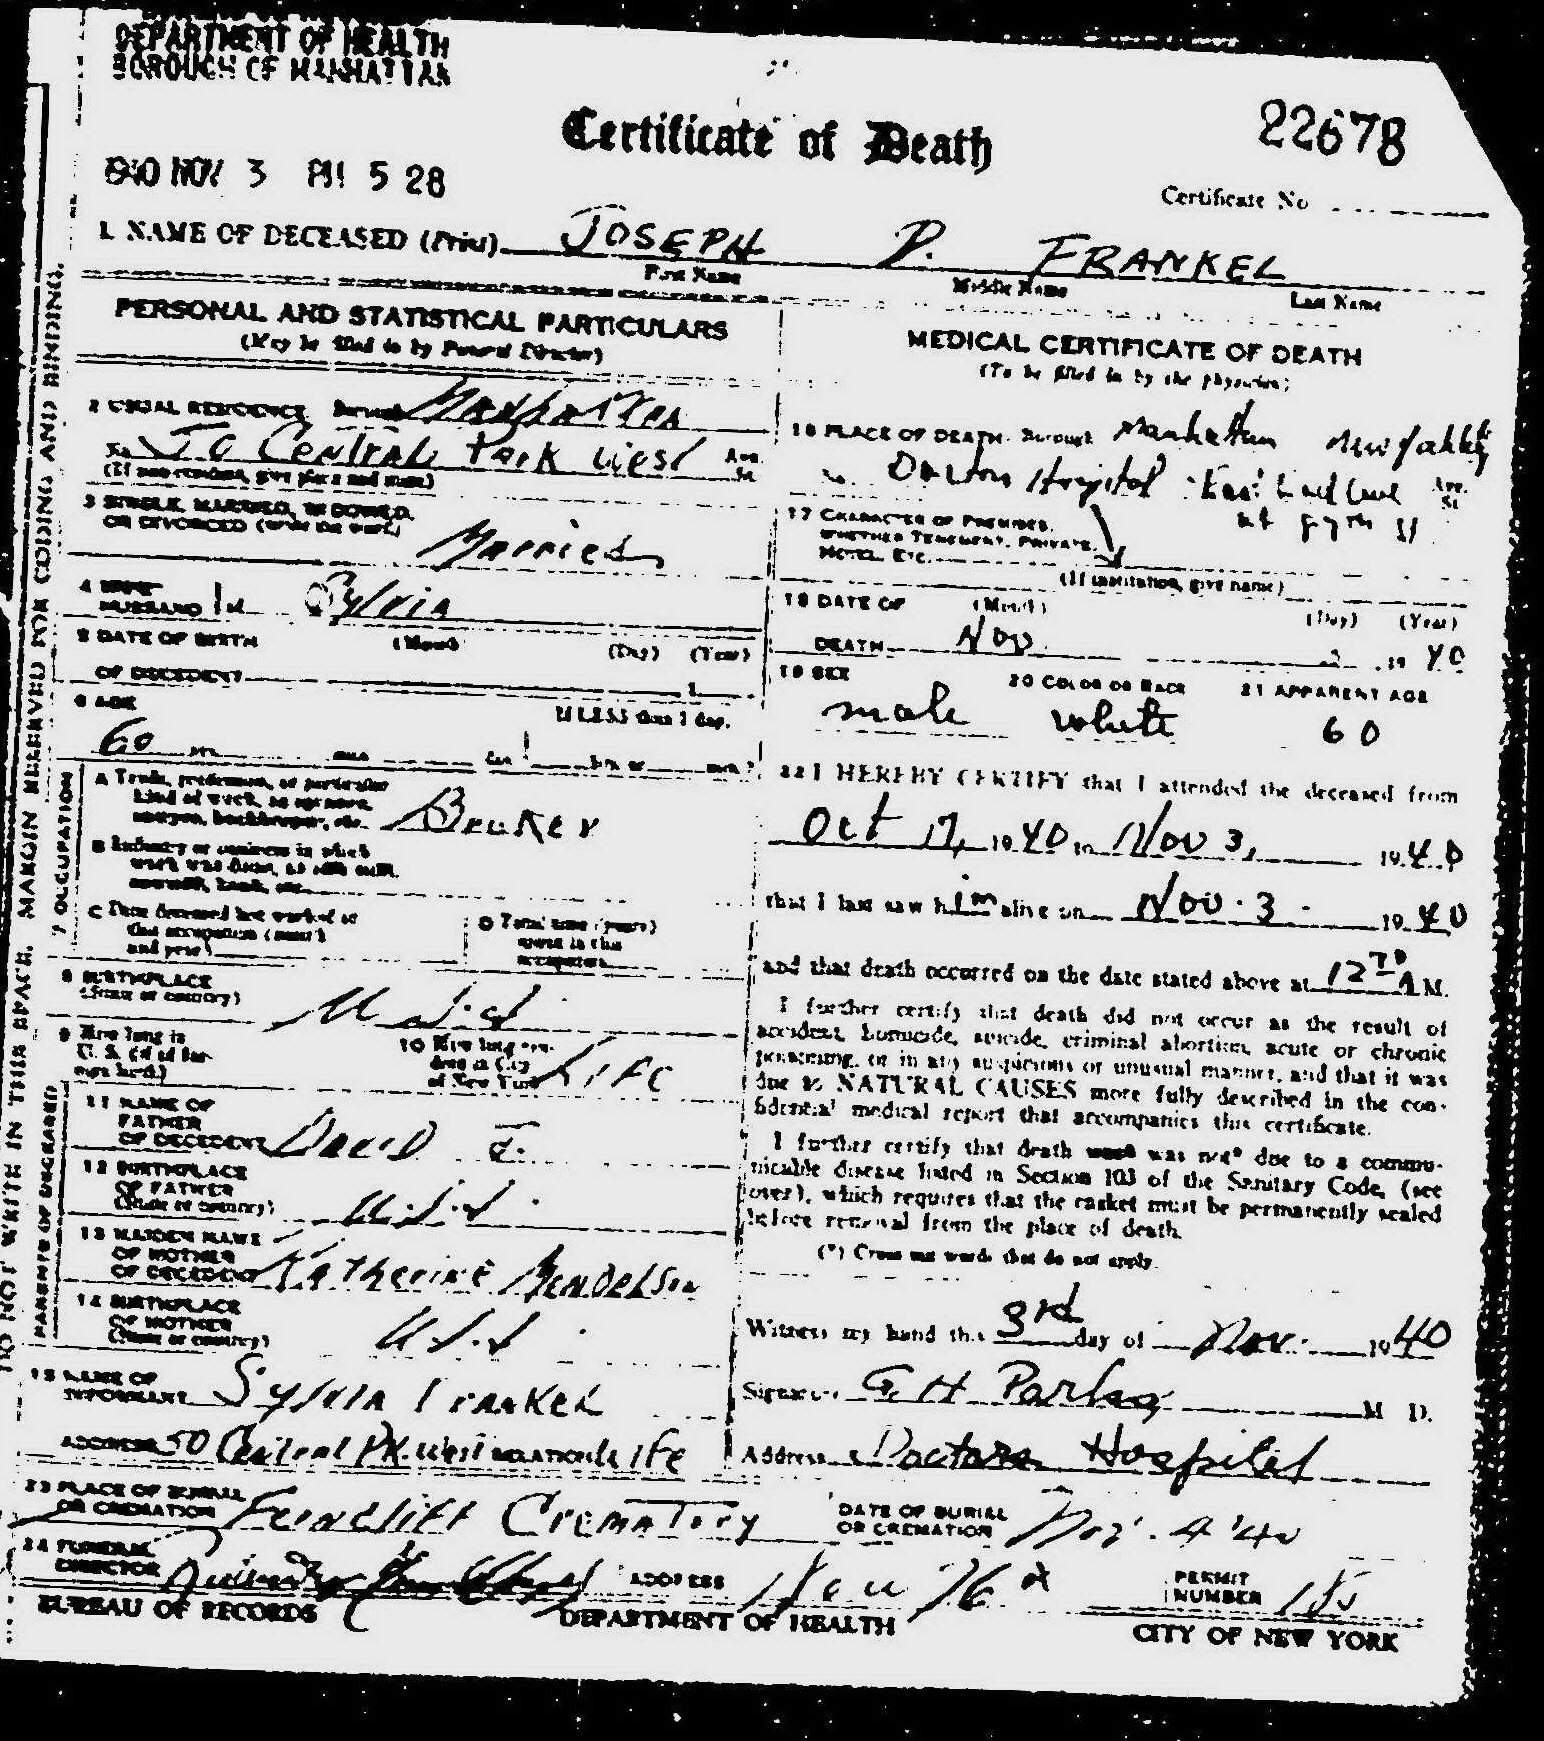 DEPARTMENT OF HEALTH
BOROUGH OF MANHATTAN
Certificate of Death
22678
1940 NOV 3 PM 5 28
Certificate No
1. NAME OF DECEASED (Print) JOSEPH D. FRANKEL
First Name Middle Name Last Name
DO NOT WRITE IN THIS SPACE. MARGIN RESERVED FOR CODING AND BINDING.
PERSONAL AND STATISTICAL PARTICULARS
(May be filled in by Funeral Director)
2 USUAL RESIDENCE Borough Manhattan
No 50 Central Park West Ave. St.
(If non-resident, give place and state)
3 SINGLE, MARRIED, WIDOWED,
OR DIVORCED (write the word)
Married
4 WIFE
HUSBAND Sylvia
5 DATE OF BIRTH (Month) (Day) (Year)
OF DECEDENT
6 AGE If LESS than 1 day,
60 yrs. mos. da. hrs. or min.?
7 OCCUPATION
A Trade, profession, or particular
kind of work, as spinner,
sawyer, bookkeeper, etc. Broker
B Industry or business in which
work was done, as silk mill,
sawmill, bank, etc.
C Date deceased last worked at
this occupation (month
and year)
D Total time (years)
spent in this
occupation
8 BIRTHPLACE
(State or country) U.S.A.
9 How long in
U. S. (if of for-
eign birth)
10 How long resi-
dent in City
of New York Life
PARENTS OF DECEASED
11 NAME OF
FATHER
OF DECEDENT David F.
12 BIRTHPLACE
OF FATHER
(State or country) U.S.A.
13 MAIDEN NAME
OF MOTHER
OF DECEDENT Katherine Mendelson
14 BIRTHPLACE
OF MOTHER
(State or country) U.S.A.
15 NAME OF
INFORMANT Sylvia Frankel
ADDRESS 50 Central Pk. West RELATION Wife
MEDICAL CERTIFICATE OF DEATH
(To be filled in by the physician)
16 PLACE OF DEATH: Borough Manhattan New York City
No. Doctors Hospital East End Ave Ave. St.
at 87th St
17 CHARACTER OF PREMISES,
WHETHER TENEMENT, PRIVATE,
HOTEL, ETC.
(If institution, give name)
18 DATE OF (Month) (Day) (Year)
DEATH Nov. 3 19 40
19 SEX 20 COLOR OR RACE 21 APPARENT AGE
male white 60
22 I HEREBY CERTIFY that I attended the deceased from
Oct 17, 1940 to Nov 3, 1940
that I last saw him alive on Nov. 3 1940
and that death occurred on the date stated above at 12 A M.
I further certify that death did not occur as the result of
accident, homicide, suicide, criminal abortion, acute or chronic
poisoning, or in any suspicious or unusual manner, and that it was
due to NATURAL CAUSES more fully described in the con-
fidential medical report that accompanies this certificate.
I further certify that death was was not* due to a commu-
nicable disease listed in Section 103 of the Sanitary Code, (see
over), which requires that the casket must be permanently sealed
before removal from the place of death.
(*) Cross out words that do not apply.
Witness my hand this 3rd day of Nov. 1940
Signature G. H. M D.
Address Doctors Hospital
23 PLACE OF BURIAL
OR CREMATION Ferncliff Crematory
DATE OF BURIAL
OR CREMATION Nov. 4 '40
24 FUNERAL
DIRECTOR
ADDRESS 76 St
PERMIT
NUMBER
BUREAU OF RECORDS DEPARTMENT OF HEALTH CITY OF NEW YORK